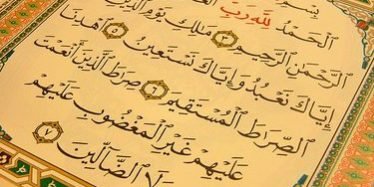 بِسْمِ
ٱلْحَمْدُ لِلَّهِ رَبِّ
ٱلرَّحْمَٰنِ ٱلرَّحِيمِ ٣ مَٰلِكِ يَوْمِ ٱلدِّينِ
إِيَّاكَ نَعْبُدُ وَإِيَّاكَ نَسْتَعِينُ ٥ ٱهْدِنَا
ٱلصِّرَٰطَ ٱلْمُسْتَقِيمَ ٦ صِرَٰطَ ٱلَّذِينَ أَنْعَمْتَ
عَلَيْهِمْ غَيْرِ ٱلْمَغْضُوبِ عَلَيْهِمْ
لَا ٱلضَّآلِّينَ ٧